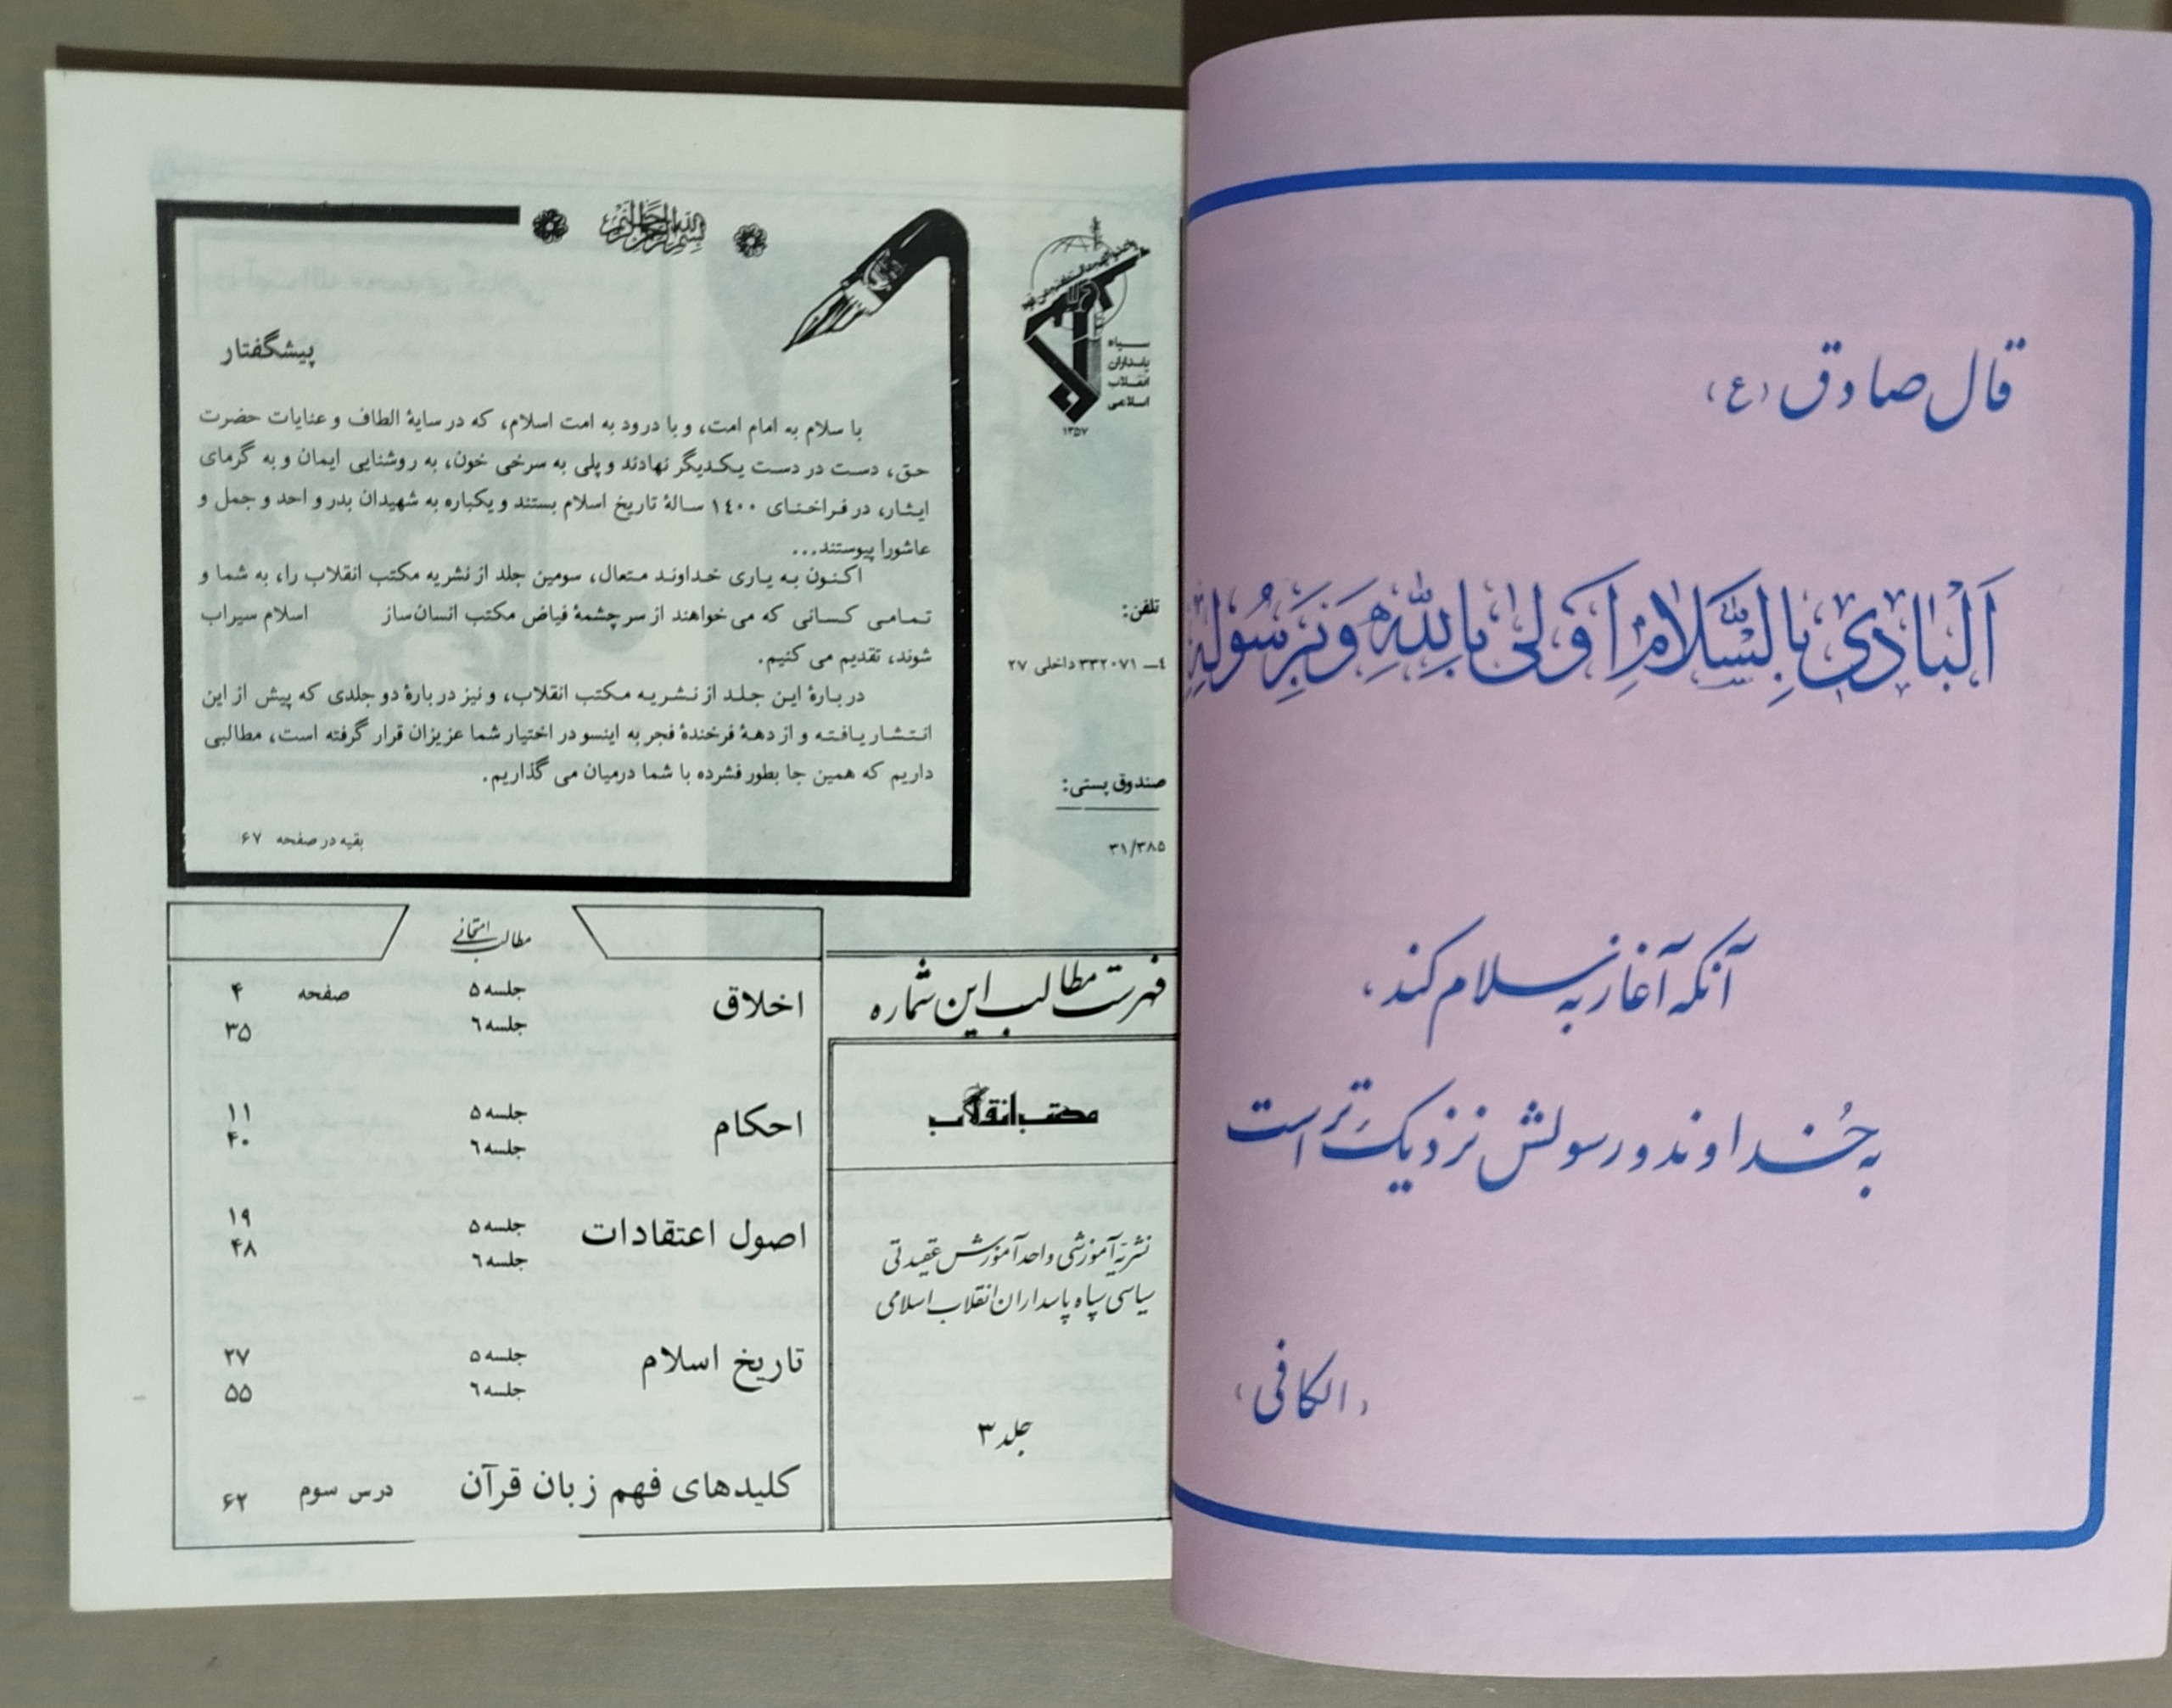 قال صادق (ع)
اَلْبادی بِالسَّلامِ اَوَلیٰ بِاللّٰهِ وَبِرَسُولِهِ
آنکه آغاز به سلام کند،
به خُداوند و رسولش نزدیک‌تر است
«الکافی»
سپاه
پاسداران
انقلاب
اسلامی
۱۳۵۷
تلفن:
٤ــ ۳۳۲۰۷۱ داخلی ۲۷
صندوق پستی:
۳۱/۳۸۵
بسم الله الرحمن الرحیم
پیشگفتار
با سلام به امام امت، و با درود به امت اسلام، که در سایهٔ الطاف و عنایات حضرت
حق، دست در دست یکدیگر نهادند و پلی به سرخی خون، به روشنایی ایمان و به گرمای
ایثار، در فراخنای ۱٤۰۰ سالهٔ تاریخ اسلام بستند و یکباره به شهیدان بدر و احد و جمل و
عاشورا پیوستند...
اکنون به یاری خداوند متعال، سومین جلد از نشریه مکتب انقلاب را، به شما و
تمامی کسانی که می خواهند از سرچشمهٔ فیاض مکتب انسان‌ساز اسلام سیراب
شوند، تقدیم می کنیم.
دربارهٔ این جلد از نشریه مکتب انقلاب، و نیز دربارهٔ دو جلدی که پیش از این
انتشار یافته و از دههٔ فرخندهٔ فجر به اینسو در اختیار شما عزیزان قرار گرفته است، مطالبی
داریم که همین جا بطور فشرده با شما درمیان می گذاریم.
بقیه در صفحه ۶۷
فهرست مطالب این شماره
مکتب انقلاب
نشریهٔ آموزشی واحد آموزش عقیدتی
سیاسی سپاه پاسداران انقلاب اسلامی
جلد ۳
مطالب امتحانی
اخلاق جلسه ۵ صفحه ۴
جلسه ٦ ۳۵
احکام جلسه ۵ ۱۱
جلسه ٦ ۴۰
اصول اعتقادات جلسه ۵ ۱۹
جلسه ٦ ۴۸
تاریخ اسلام جلسه ۵ ۲۷
جلسه ٦ ۵۵
کلیدهای فهم زبان قرآن درس سوم ۶۲